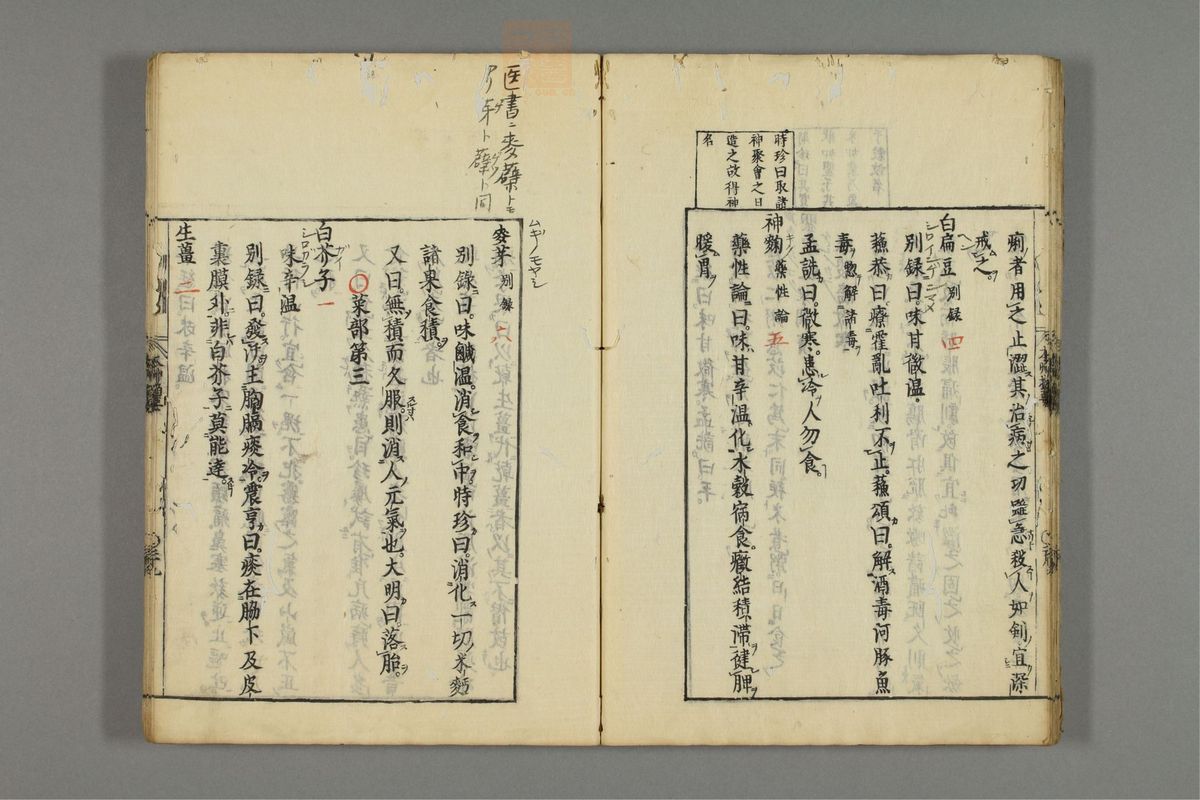 時珍曰取諸
神聚會之日
造之故得神
名
痢者用之止澀其治病之功雖急殺人如劍宜深
戒之
白扁豆 別録 四
別録曰味甘微温
蘓恭曰療霍亂吐利不止蘓頌曰解酒毒河豚魚
毒
解諸毒
孟詵曰微寒患冷人勿食
神麹 藥性論 五
藥性論曰味甘辛温化水穀宿食癥結積滞健脾
暖胃
医書ニ麥蘗トモ
ムギノモヤシ
麥芽 別録 六
別録曰味鹹温消食和中時珍曰消化一切米麪
諸果食積
又曰無積而久服則消人元氣也大明曰落胎
○菜部第三
白芥子 一
シロカラシ
味辛温
別録曰發汗主胸膈痰冷震亨曰痰在脇下及皮
裏膜外非白芥子莫能達
生薑 二